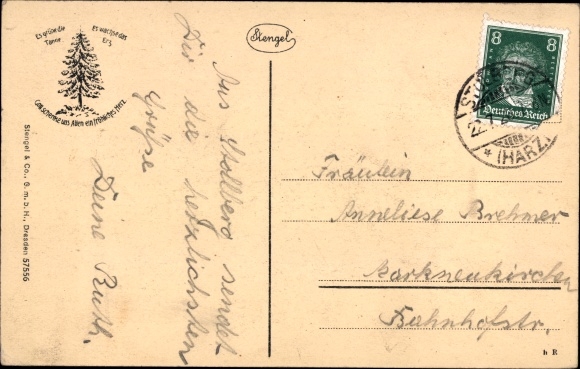 Es grüne die Tanne
Es wachse das Erz
Gott schenke uns Allen ein fröhliches Herz.
Stengel
Stengel & Co., G. m. b. H., Dresden 57556
Aus Stolberg sendet
Dir die herzlichsten
Grüße
Deine Ruth.
8 8
Deutsches Reich
STOLBERG
(HARZ)
Fräulein
Anneliese Brehmer
Markneukirchen
Bahnhofstr.
b R